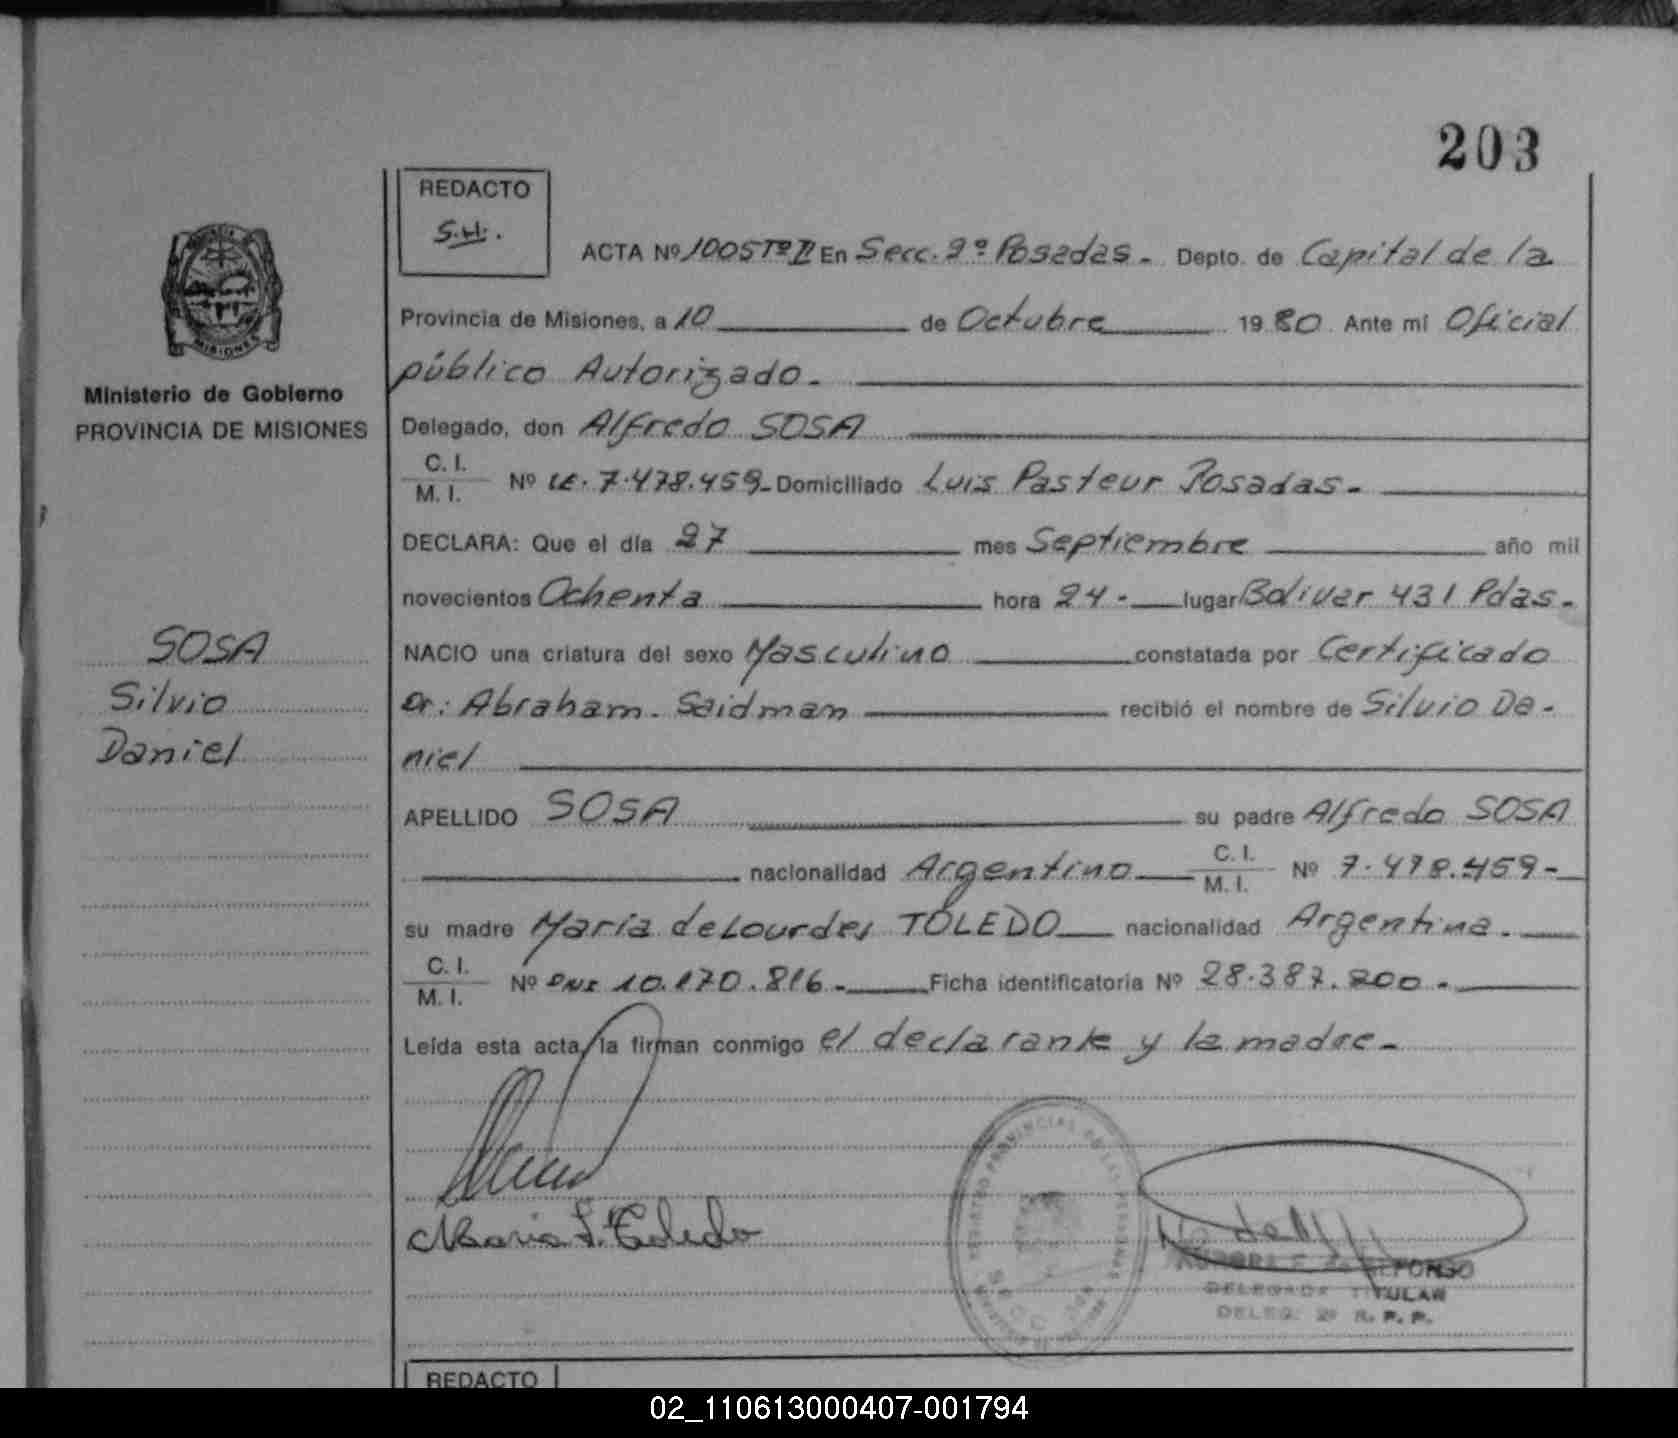 203
REDACTO
S.H.
ACTA Nº 1005 Tº II En Secc. 2º Posadas.- Depto. de Capital de la
Provincia de Misiones, a 10 de Octubre 1980 Ante mi Oficial
público Autorizado.-
Ministerio de Gobierno
PROVINCIA DE MISIONES
Delegado, don Alfredo SOSA
C. I.
M. I. Nº LE. 7.478.459- Domiciliado Luis Pasteur Posadas.-
DECLARA: Que el día 27 mes Septiembre año mil
novecientos Ochenta hora 24.- lugar Bolivar 431 Pdas.-
SOSA
Silvio
Daniel
NACIO una criatura del sexo Masculino constatada por Certificado
Dr: Abraham. Seidman recibió el nombre de Silvio Da-
niel
APELLIDO SOSA su padre Alfredo SOSA
nacionalidad Argentino C. I.
M. I. Nº 7.478.459-
su madre Maria de Lourdes TOLEDO nacionalidad Argentina.-
C. I.
M. I. Nº DNI 10.170.816.- Ficha identificatoria Nº 28.387.200.-
Leída esta acta, la firman conmigo el declarante y la madre.-
Maria L. Toledo
REGISTRO PROVINCIAL DE LAS PERSONAS
MISIONES
de ALFONSO
DELEGADA TITULAR
DELEG. 2º R. P. P.
REDACTO
02_110613000407-001794